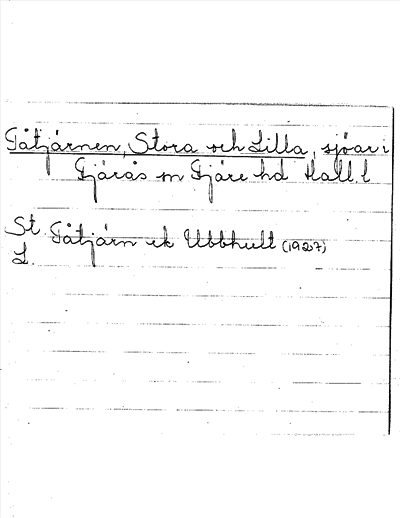 Gåtjärnen, Stora och Lilla, sjöar i
Fjärås sn Fjäre hd Hall. l
St. Gåtjärn ek Ubbhult (1927)
L.